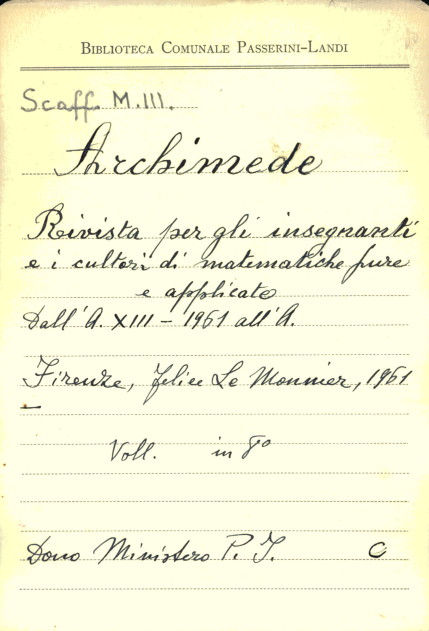 BIBLIOTECA COMUNALE PASSERINI-LANDI
Scaff. M.III.
Archimede
Rivista per gli insegnanti
e i cultori di matematiche pure
e applicate
Dall'A. XIII - 1961 all'A.
Firenze, Felice Le Monnier, 1961
-
Voll. in 8º
Dono Ministero P. I. C